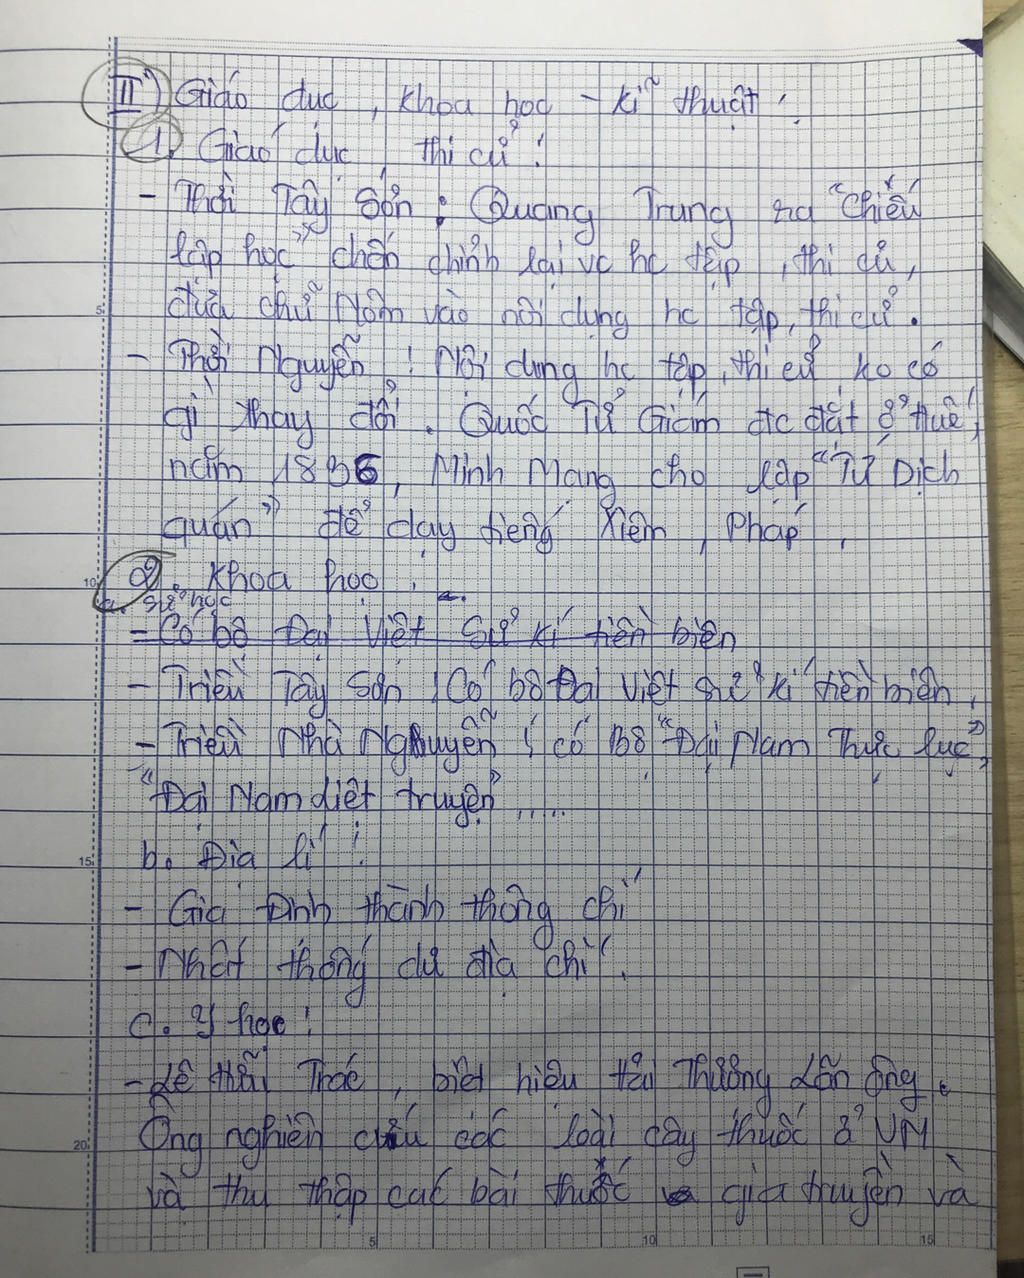 II) Giáo dục, khoa học - kĩ thuật:
1. Giáo dục, thi cử:
- Thời Tây Sơn: Quang Trung ra "Chiếu
lập học" chấn chỉnh lại vc hc tập, thi cử,
đưa chữ Nôm vào nội dung hc tập, thi cử.
- Thời Nguyễn: Nội dung hc tập, thi cử ko có
gì thay đổi. Quốc Tử Giám đc đặt ở Huế,
năm 1836, Minh Mạng cho lập "Tứ Dịch
quán" để dạy tiếng Xiêm, Pháp.
2. Khoa học.
a. Sử học
- Có bộ Đại Việt Sử kí tiền biên
- Triều Tây Sơn: Có bộ Đại Việt sử kí tiền biên,
- Triều Nhà Nguyễn: có Bộ "Đại Nam Thực lục",
"Đại Nam diệt truyện".....
b. Địa lí:
- Gia Định thành thông chí
- Nhất thống dư địa chí.
c. Y học:
- Lê Hữu Trác, biệt hiệu Hải Thượng Lãn Ông.
Ông nghiên cứu các loài cây thuốc ở VN
và thu thập các bài thuốc gia truyền và
5 10 15
5
10
15
20